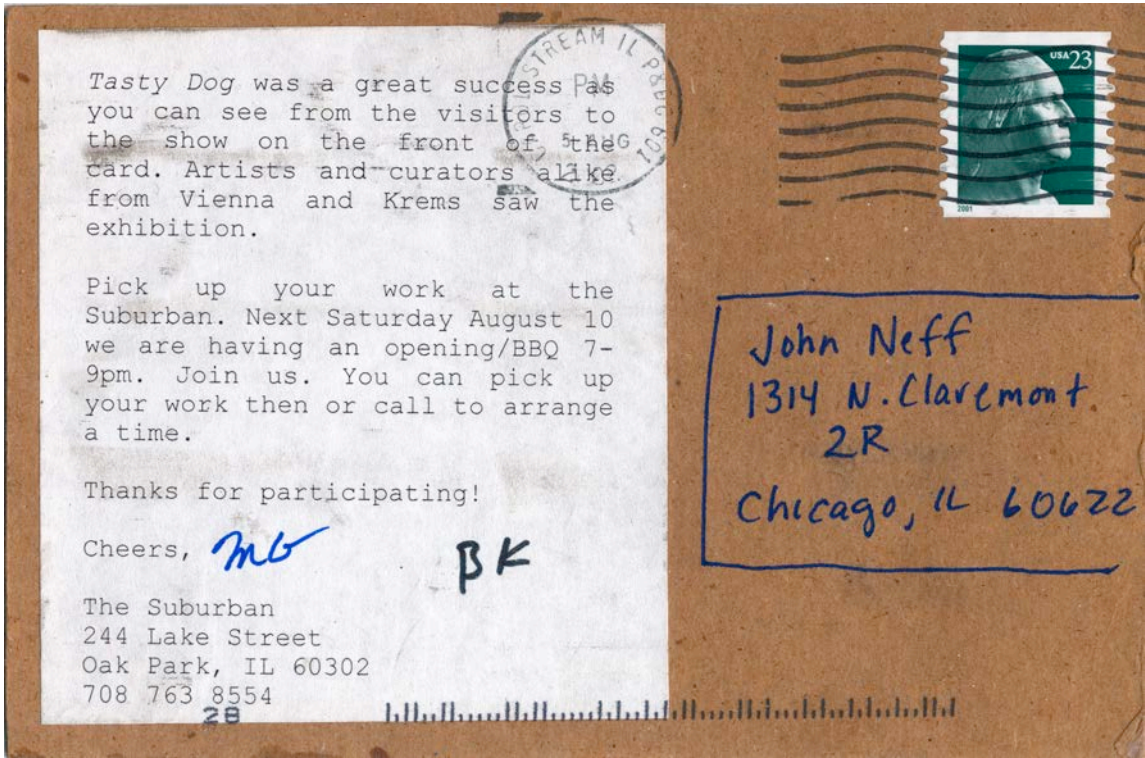 Tasty Dog was a great success as
you can see from the visitors to
the show on the front of the
card. Artists and curators alike
from Vienna and Krems saw the
exhibition.
Pick up your work at the
Suburban. Next Saturday August 10
we are having an opening/BBQ 7-
9pm. Join us. You can pick up
your work then or call to arrange
a time.
Thanks for participating!
Cheers, MG BK
The Suburban
244 Lake Street
Oak Park, IL 60302
708 763 8554
28
STREAM IL P&DC 601
PM
5 AUG
USA 23
2001
John Neff
1314 N. Claremont
2R
Chicago, IL 60622